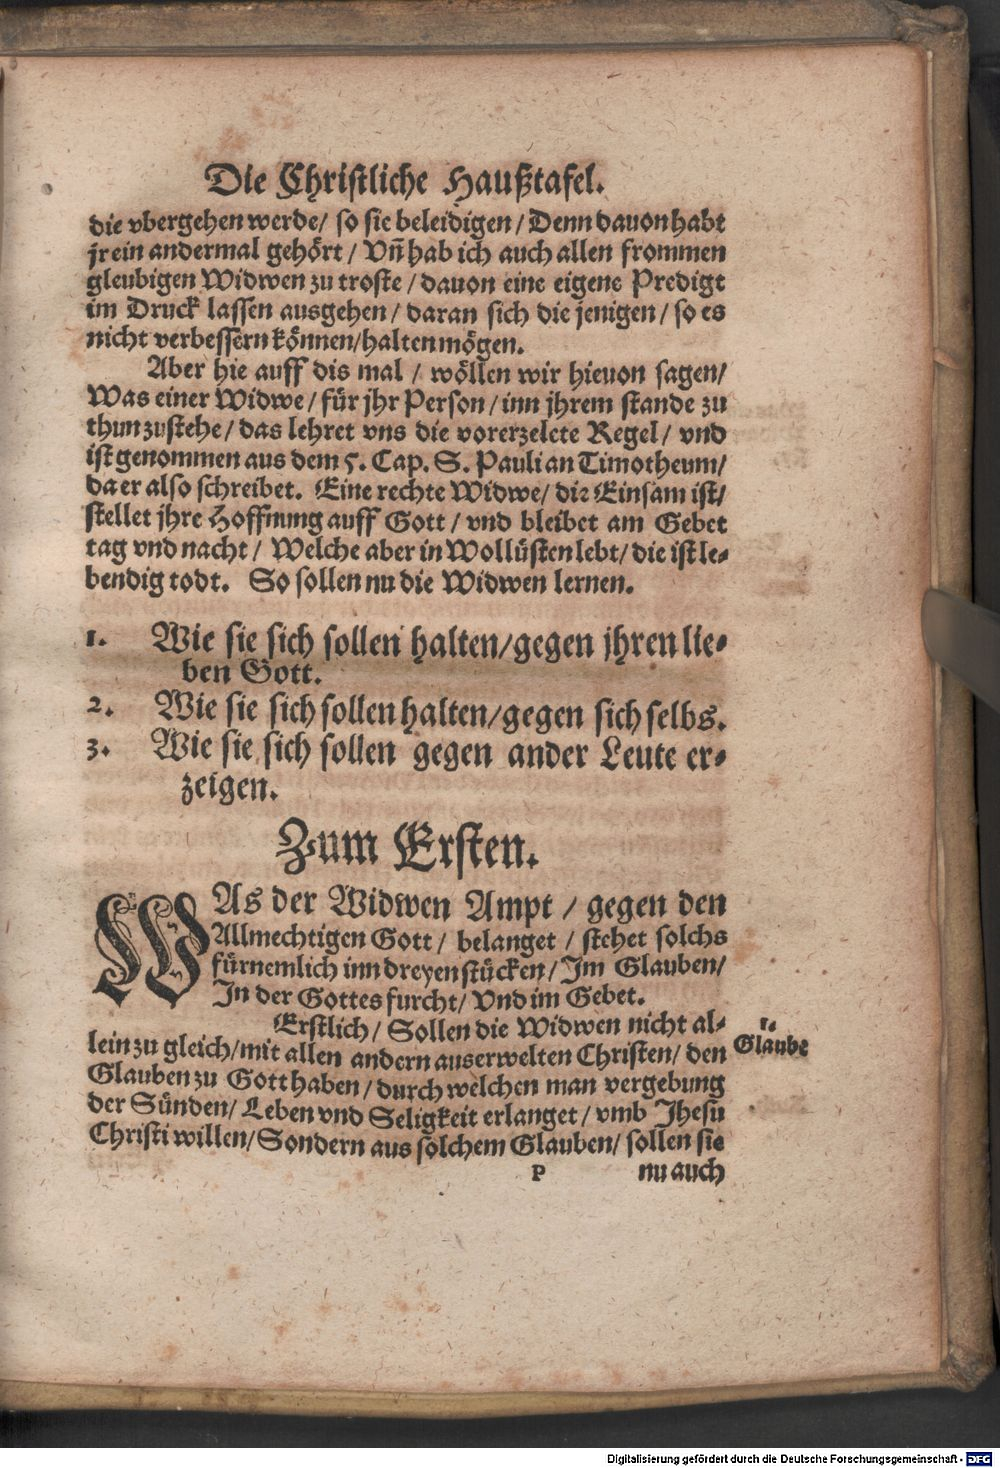 Die Christliche Haußtafel.
die vbergehen werde/ so sie beleidigen/ Denn dauon habt
jr ein andermal gehört/ Vñ hab ich auch allen frommen
gleubigen Widwen zu troste/ dauon eine eigene Predigt
im Druck lassen ausgehen/ daran sich die jenigen/ so es
nicht verbessern können/halten mögen.
Aber hie auff dis mal/ wöllen wir hieuon sagen/
Was einer Widwe/ für jhr Person/ inn jhrem stande zu
thun zustehe/ das lehret vns die vorerzelete Regel/ vnd
ist genommen aus dem 5. Cap. S. Pauli an Timotheum/
da er also schreibet. Eine rechte Widwe/ die Einsam ist/
stellet jhre Hoffnung auff Gott/ vnd bleibet am Gebet
tag vnd nacht/ Welche aber in Wollüsten lebt/ die ist le-
bendig todt. So sollen nu die Widwen lernen.
1. Wie sie sich sollen halten/gegen jhren lie-
ben Gott.
2. Wie sie sich sollen halten/gegen sich selbs.
3. Wie sie sich sollen gegen ander Leute er-
zeigen.
Zum Ersten.
WAs der Widwen Ampt/ gegen den
Allmechtigen Gott/ belanget/ stehet solchs
fürnemlich inn dreyen stücken/ Im Glauben/
In der Gottes furcht/ Vnd im Gebet.
Erstlich/ Sollen die Widwen nicht al-
lein zu gleich/mit allen andern auserwelten Christen/ den
1.
Glaube
Glauben zu Gott haben/ durch welchen man vergebung
der Sünden/ Leben vnd Seligkeit erlanget/ vmb Jhesu
Christi willen/ Sondern aus solchem Glauben/ sollen sie
P nu auch
Digitalisierung gefördert durch die Deutsche Forschungsgemeinschaft - DFG